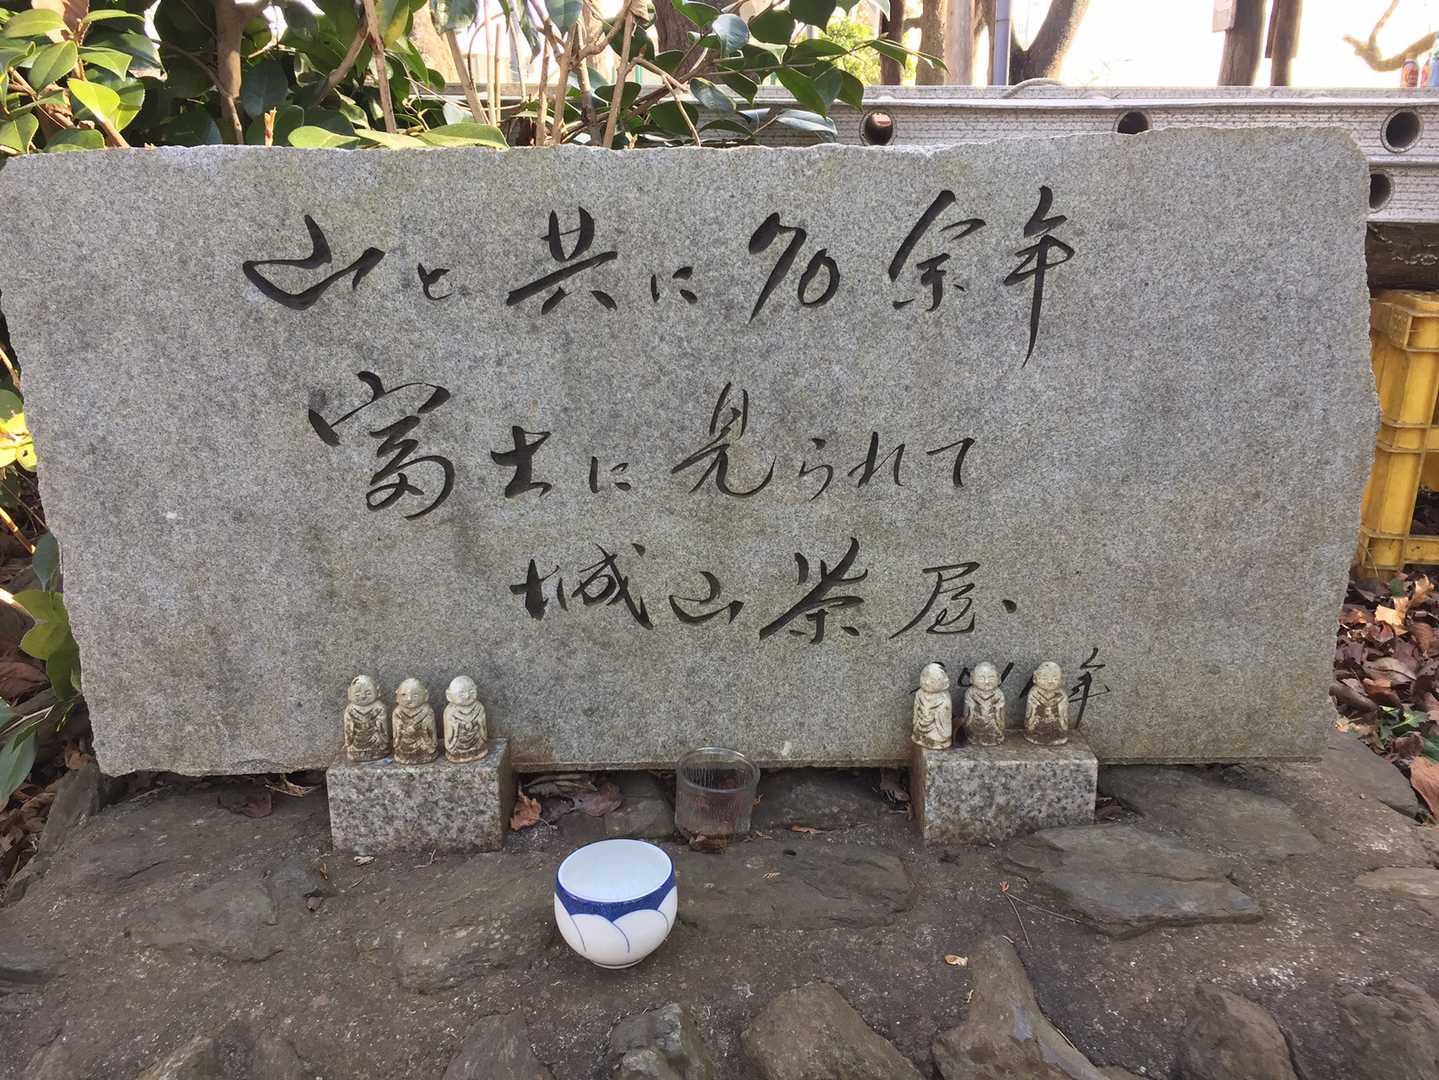 山と共に70余年
富士に見られて
城山茶屋.
年